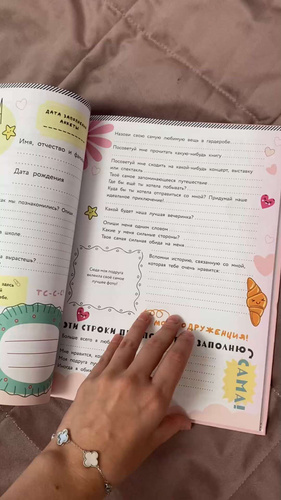 ДАТА ЗАПОЛНЕНИЯ
АНКЕТЫ
Имя, отчество и
Дата рождения
мы познакомились?
школе
вырастешь?
здесь
ТС-С-С!
Назови свою самую любимую вещь в гардеробе
Посоветуй мне прочитать какую-нибудь книгу
Посоветуй мне сходить на какой-нибудь концерт, выставку
или спектакль
Твоё самое запоминающееся путешествие
Где бы ещё ты хотела побывать?
Куда бы ты хотела отправиться со мной? Придумай наше
идеальное приключение!
Какой будет наша лучшая вечеринка?
Опиши меня одним словом
Какие у меня сильные стороны?
Твоя самая сильная обида на меня
Сюда моя подруга
вклеила своё самое
лучшее фото!
Вспомни историю, связанную со мной,
которая тебе очень нравится:
ПОДРУЖЕНЦИЯ!
ЭТИ СТРОКИ
САМА!
Больше всего
Мне нравится,
Моя подруга
Иногда я